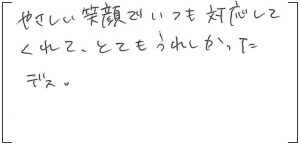 やさしい笑顔でいつも対応して
くれて、とてもうれしかった
デス。